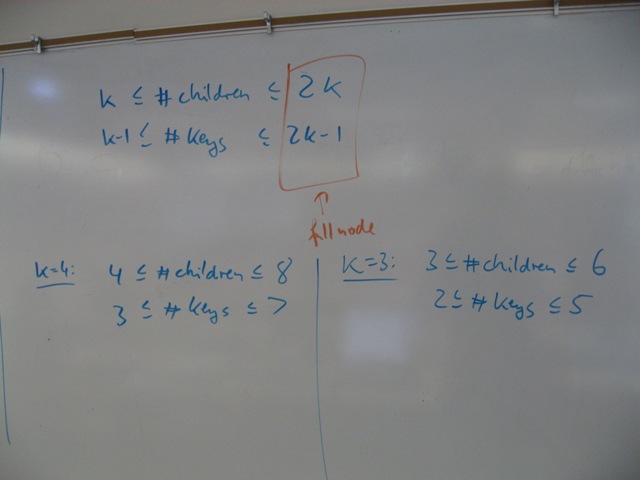 k ≤ # children ≤ 2k
k-1 ≤ # keys ≤ 2k-1
↑
full node
k=4: 4 ≤ # children ≤ 8
3 ≤ # keys ≤ 7
k=3: 3 ≤ # children ≤ 6
2 ≤ # keys ≤ 5